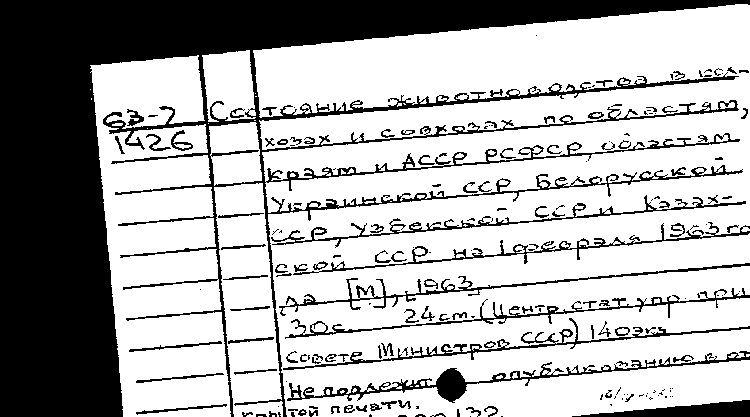 63-7 Состояние животноводства в кол-
1426 хозах и совхозах по областям,
краям и АССР РСФСР, областям
Украинской ССР, Белорусской
ССР, Узбекской ССР и Казах-
ской ССР на 1 февраля 1963 го
да [М], 1963.
30с. 24см. (Центр. стат. упр. при
Совете Министров СССР) 140экз
Не подлежит опубликованию в от
крытой печати.